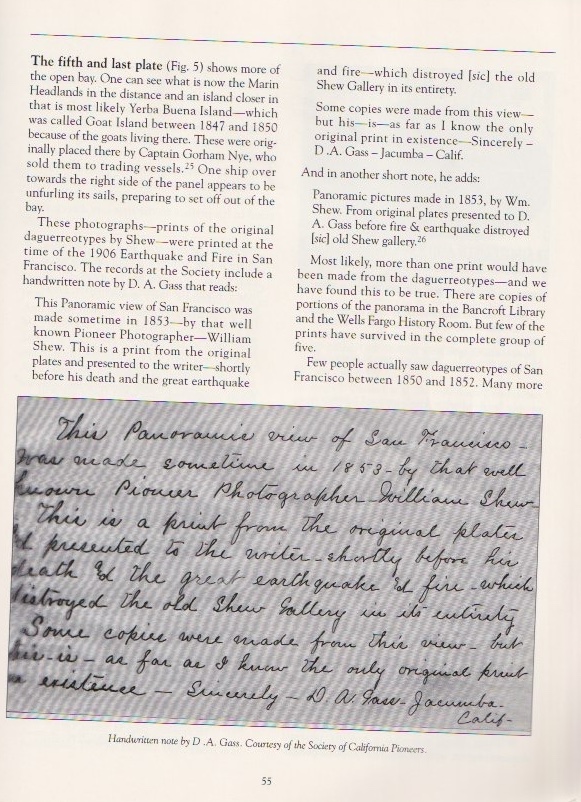 The fifth and last plate (Fig. 5) shows more of
the open bay. One can see what is now the Marin
Headlands in the distance and an island closer in
that is most likely Yerba Buena Island—which
was called Goat Island between 1847 and 1850
because of the goats living there. These were orig-
inally placed there by Captain Gorham Nye, who
sold them to trading vessels.25 One ship over
towards the right side of the panel appears to be
unfurling its sails, preparing to set off out of the
bay.
These photographs—prints of the original
daguerreotypes by Shew—were printed at the
time of the 1906 Earthquake and Fire in San
Francisco. The records at the Society include a
handwritten note by D. A. Gass that reads:
This Panoramic view of San Francisco was
made sometime in 1853—by that well
known Pioneer Photographer—William
Shew. This is a print from the original
plates and presented to the writer—shortly
before his death and the great earthquake
and fire—which distroyed [sic] the old
Shew Gallery in its entirety.
Some copies were made from this view—
but his—is—as far as I know the only
original print in existence—Sincerely –
D .A. Gass – Jacumba – Calif.
And in another short note, he adds:
Panoramic pictures made in 1853, by Wm.
Shew. From original plates presented to D.
A. Gass before fire & earthquake distroyed
[sic] old Shew gallery.26
Most likely, more than one print would have
been made from the daguerreotypes—and we
have found this to be true. There are copies of
portions of the panorama in the Bancroft Library
and the Wells Fargo History Room. But few of the
prints have survived in the complete group of
five.
Few people actually saw daguerreotypes of San
Francisco between 1850 and 1852. Many more
This Panoramic view of San Francisco -
was made sometime in 1853 - by that well
known Pioneer Photographer - William Shew -
This is a print from the original plates
& presented to the writer - shortly before his
death & the great earthquake & fire - which
distroyed the old Shew Gallery in its entirety
Some copies were made from this view - but
his - is - as far as I know the only original print
in existence - Sincerely - D. A. Gass - Jacumba -
Calif -
Handwritten note by D .A. Gass. Courtesy of the Society of California Pioneers.
55